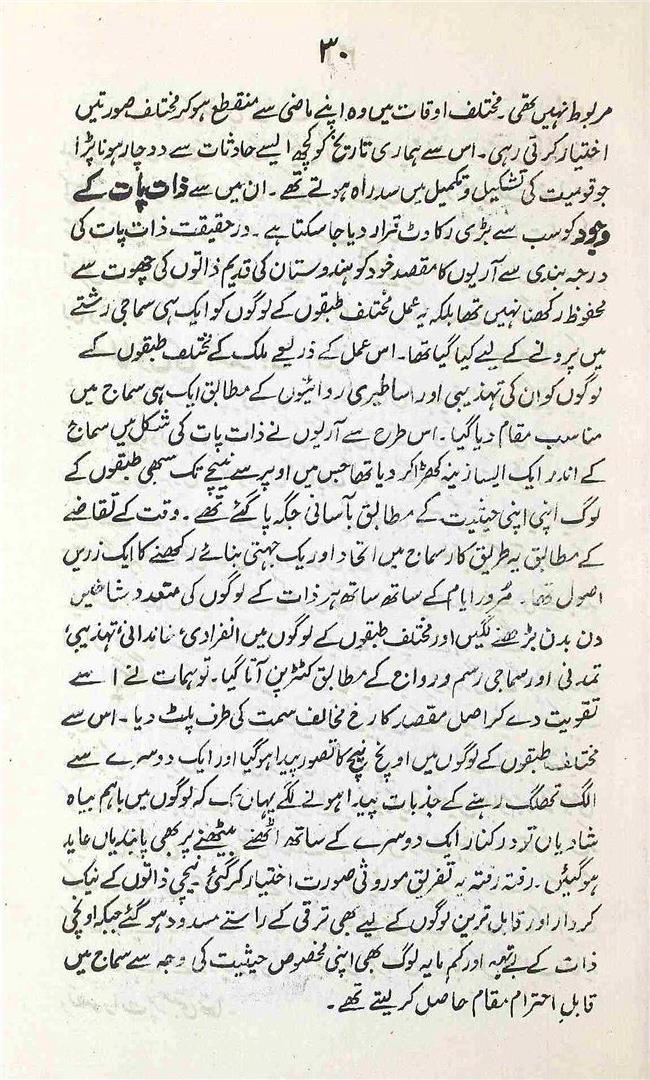 ۳۰
مربوط نہیں تھی۔ مختلف اوقات میں وہ اپنے ماضی سے منقطع ہو کر مختلف صورتیں
اختیار کرتی رہی۔ اس سے ہماری تاریخ کو کچھ ایسے حادثات سے دوچار ہونا پڑا
جو قومیت کی تشکیل و تکمیل میں سدراہ ہوتے تھے۔ ان میں سے ذات پات کے
وجود کو سب سے بڑی رکاوٹ قرار دیا جا سکتا ہے۔ درحقیقت ذات پات کی
درجہ بندی سے آریوں کا مقصد خود کو ہندوستان کی قدیم ذاتوں کی چھوت سے
محفوظ رکھنا نہیں تھا بلکہ یہ عمل مختلف طبقوں کے لوگوں کو ایک ہی سماجی رشتے
میں پرونے کے لیے کیا گیا تھا۔ اس عمل کے ذریعے ملک کے مختلف طبقوں کے
لوگوں کو ان کی تہذیبی اور اساطیری روائیوں کے مطابق ایک ہی سماج میں
مناسب مقام دیا گیا۔ اس طرح سے آریوں نے ذات پات کی شکل میں سماج
کے اندر ایک ایسا زینہ کھڑا کر دیا تھا جس میں اوپر سے نیچے تک سبھی طبقوں کے
لوگ اپنی اپنی حیثیت کے مطابق بآسانی جگہ پا گئے تھے۔ وقت کے تقاضے
کے مطابق یہ طریق کار سماج میں اتحاد اور یک جہتی بنائے رکھنے کا ایک زریں
اصول تھا۔ مُرور ایام کے ساتھ ساتھ ہر ذات کے لوگوں کی متعدد شاخیں
دن بدن بڑھنے لگیں اور مختلف طبقوں کے لوگوں میں انفرادی، خاندانی، تہذیبی،
تمدنی اور سماجی رسم و رواج کے مطابق کٹرپن آتا گیا۔ توہمات نے اسے
تقویت دے کر اصل مقصد کا رخ مخالف سمت کی طرف پلٹ دیا۔ اس سے
مختلف طبقوں کے لوگوں میں اونچ نیچ کا تصور پیدا ہو گیا اور ایک دوسرے سے
الگ تھلگ رہنے کے جذبات پیدا ہونے لگے یہاں تک کہ لوگوں میں باہم بیاہ
شادیاں تو درکنار ایک دوسرے کے ساتھ اٹھنے بیٹھنے پر بھی پابندیاں عاید
ہو گئیں۔ رفتہ رفتہ یہ تفریق موروثی صورت اختیار کر گئی، نیچی ذاتوں کے نیک
کردار اور قابل ترین لوگوں کے لیے بھی ترقی کے راستے مسدود ہو گئے جبکہ اونچی
ذات کے بے تہہ اور کم مایہ لوگ بھی اپنی مخصوص حیثیت کی وجہ سے سماج میں
قابلِ احترام مقام حاصل کر لیتے تھے۔